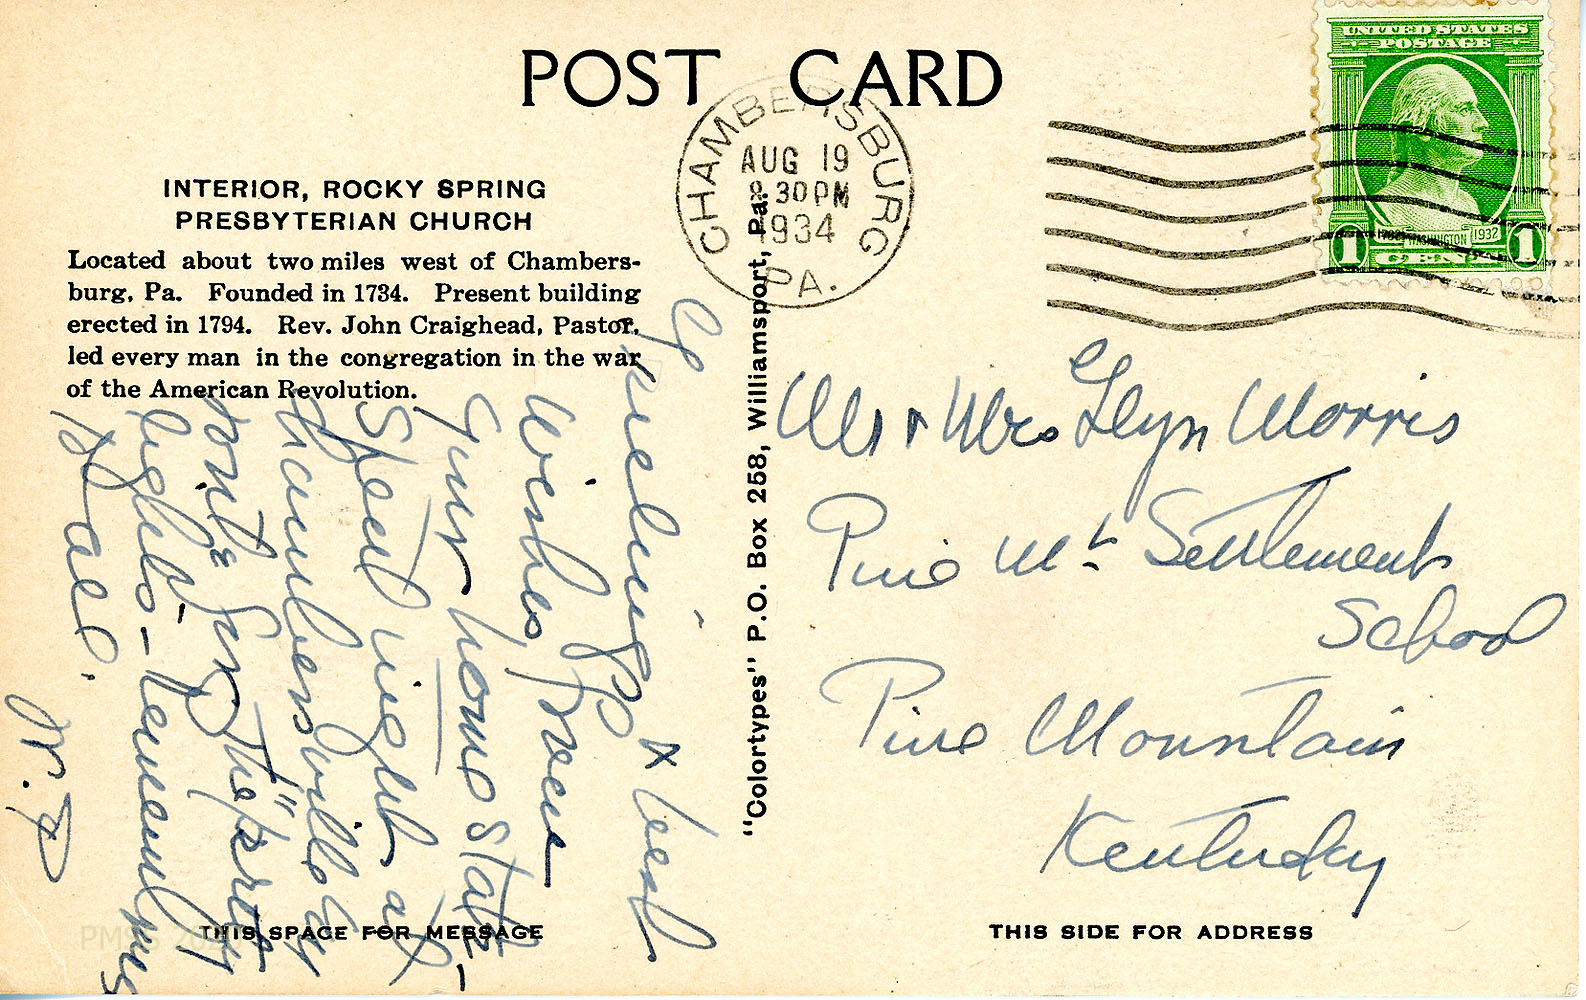 POST CARD
UNITED STATES
POSTAGE
WASHINGTON
1932
1 1
CHAMBERSBURG
AUG 19
30 PM
1934
PA.
INTERIOR, ROCKY SPRING
PRESBYTERIAN CHURCH
Located about two miles west of Chambers-
burg, Pa. Founded in 1734. Present building
erected in 1794. Rev. John Craighead, Pastor,
led every man in the congregation in the war
of the American Revolution.
Greetings & best
Wishes from
Your home state -
Spent night at
& Sang
lights - Remember me
to all.
"Colortypes" P.O. Box 258, Williamsport, Pa.
Mr & Mrs Glyn Morris
Pine Mt Settlement
School
Pine Mountain
Kentucky
THIS SPACE FOR MESSAGE
THIS SIDE FOR ADDRESS
PMSS